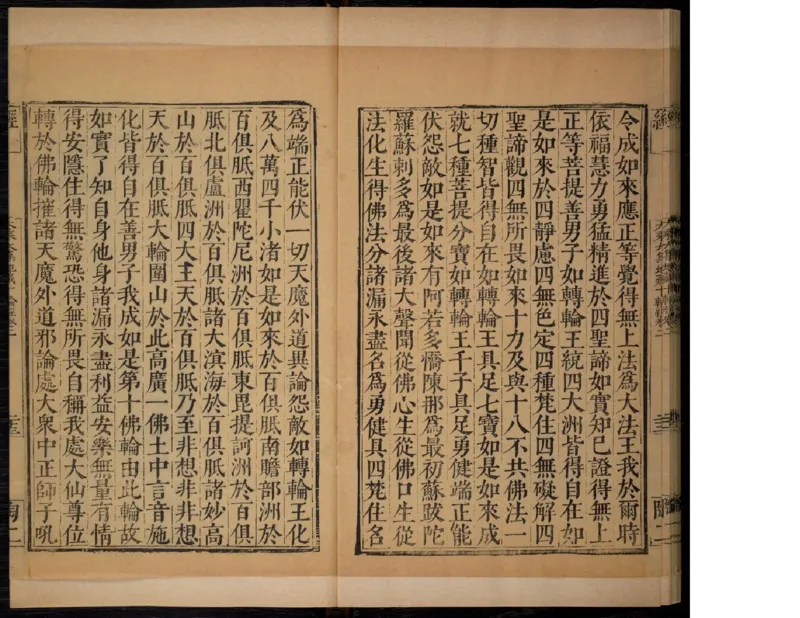 令成如來應正等覺得無上法爲大法王我於爾時
依福慧力勇猛精進於四聖諦如實知已證得無上
正等菩提善男子如轉輪王統四大洲皆得自在如
是如來於四靜慮四無色定四種梵住四無礙解四
聖諦觀四無所畏如來十力及與十八不共佛法一
切種智皆得自在如轉輪王具足七寶如是如來成
就七種菩提分寶如轉輪王千子具足勇健端正能
伏怨敵如是如來有阿若多憍陳那爲最初蘇跋陀
羅蘇剌多爲最後諸大聲聞從佛心生從佛口生從
法化生得佛法分諸漏永盡名爲勇健具四梵住名
爲端正能伏一切天魔外道異論怨敵如轉輪王化
及八萬四千小渚如是如來於百俱胝南贍部洲於
百俱胝西瞿陀尼洲於百俱胝東毘提訶洲於百俱
胝北俱盧洲於百俱胝諸大溟海於百俱胝諸妙高
山於百俱胝四大王天於百俱胝乃至非想非非想
天於百俱胝大輪圍山於此高廣一佛土中言音施
化皆得自在善男子我成如是第十佛輪由此輪故
如實了知自身他身諸漏永盡利益安樂無量有情
得安隱住得無驚恐得無所畏自稱我處大仙尊位
轉於佛輪摧諸天魔外道邪論處大衆中正師子吼